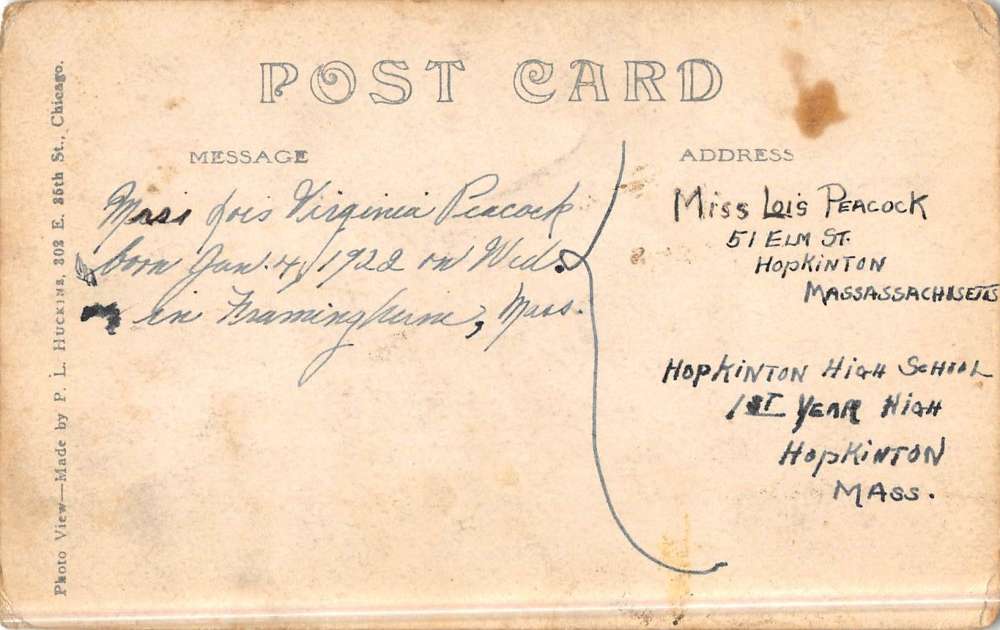 POST CARD
MESSAGE
Miss Lois Virginia Peacock
born Jan. 4, 1922 on Wed.
in Framingham, Mass.
ADDRESS
Miss Lois Peacock
51 Elm St.
Hopkinton
Massassachusetts
Hopkinton High School
1st Year High
Hopkinton
Mass.
Photo View—Made by P. L. Huckins, 302 E. 35th St., Chicago.